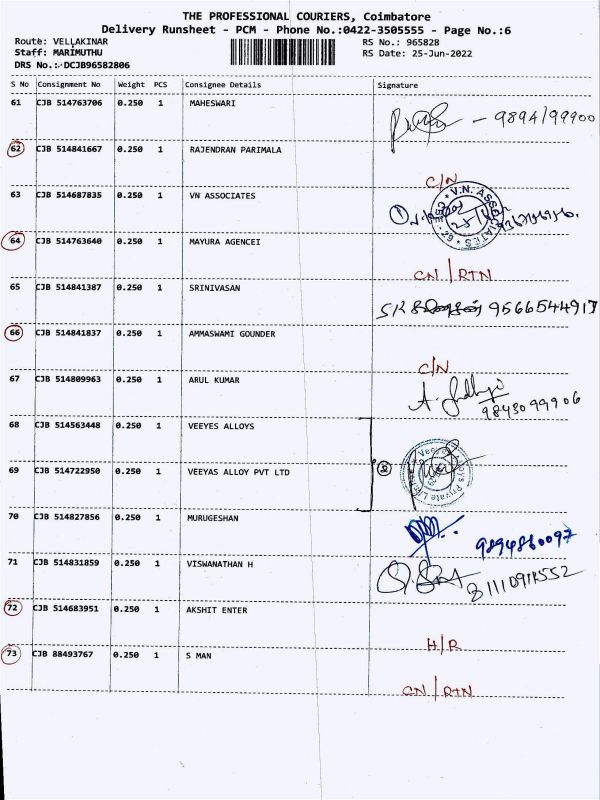 THE PROFESSIONAL COURIERS, Coimbatore
Delivery Runsheet - PCM - Phone No.:0422-3505555 - Page No.:6
Route: VELLAKINAR RS No.: 965828
Staff: MARIMUTHU RS Date: 25-Jun-2022
DRS No.: DCJB96582806
S No Consignment No Weight PCS Consignee Details Signature
61 CJB 514763706 0.250 1 MAHESWARI
62 CJB 514841667 0.250 1 RAJENDRAN PARIMALA
C/N
63 CJB 514687835 0.250 1 VN ASSOCIATES
V.N. ASSOCIATES
64 CJB 514763640 0.250 1 MAYURA AGENCEI
CN/RTN
65 CJB 514841387 0.250 1 SRINIVASAN
66 CJB 514841837 0.250 1 AMMASWAMI GOUNDER
C/N
67 CJB 514809963 0.250 1 ARUL KUMAR
9843099906
68 CJB 514563448 0.250 1 VEEYES ALLOYS
69 CJB 514722950 0.250 1 VEEYAS ALLOY PVT LTD
②
70 CJB 514827856 0.250 1 MURUGESHAN
9894860097
71 CJB 514831859 0.250 1 VISWANATHAN H
72 CJB 514683951 0.250 1 AKSHIT ENTER
H/R
73 CJB 88493767 0.250 1 S MAN
CN/RTN